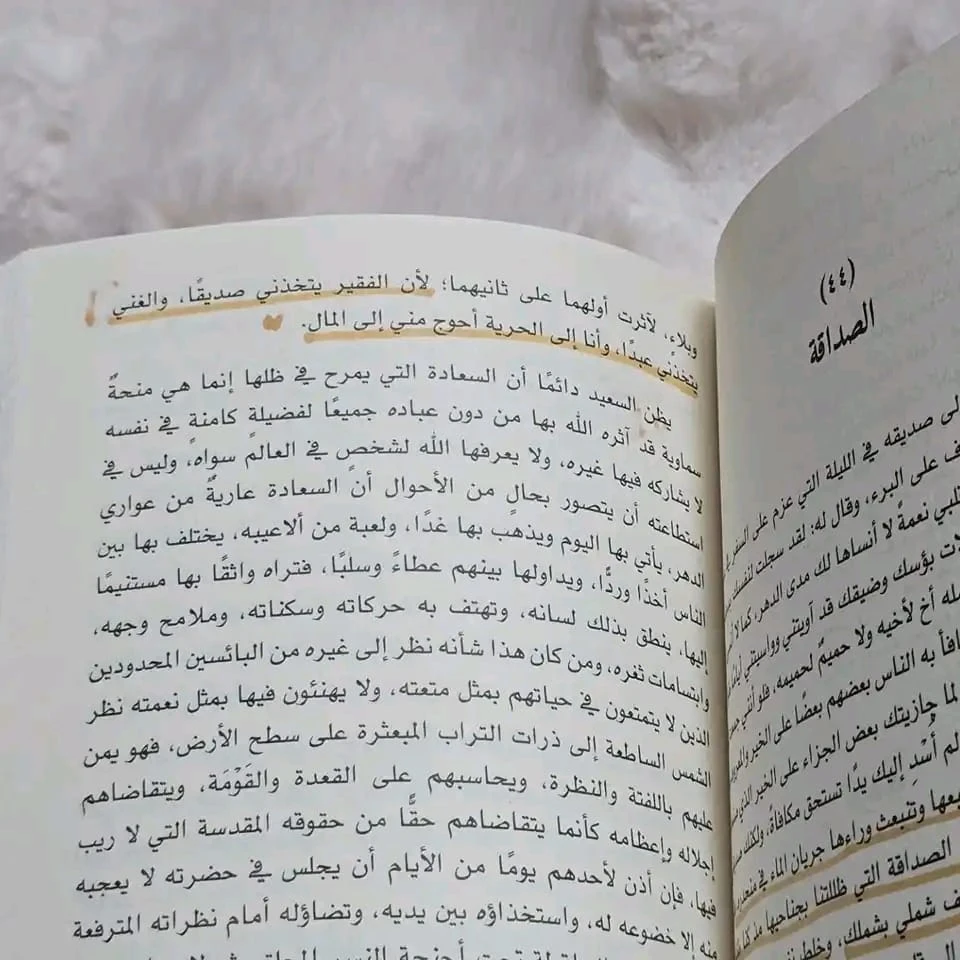 وبلاء، لآثرت أولهما على ثانيهما؛ لأن الفقير يتخذني صديقًا، والغني
يتخذني عبدًا، وأنا إلى الحرية أحوج مني إلى المال.
يظن السعيد دائمًا أن السعادة التي يمرح في ظلها إنما هي منحةٌ
سماوية قد آثره الله بها من دون عباده جميعًا لفضيلة كامنةٍ في نفسه
لا يشاركه فيها غيره، ولا يعرفها الله لشخصٍ في العالم سواه، وليس في
استطاعته أن يتصور بحالٍ من الأحوال أن السعادة عاريةٌ من عواري
الدهر، يأتي بها اليوم ويذهب بها غدًا، ولعبة من ألاعيبه، يختلف بها بين
الناس أخذًا وردًّا، ويداولها بينهم عطاءً وسلبًا، فتراه واثقًا بها مستنيمًا
إليها، ينطق بذلك لسانه، وتهتف به حركاته وسكناته، وملامح وجهه،
وابتسامات ثغره، ومن كان هذا شأنه نظر إلى غيره من البائسين المحدودين
الذين لا يتمتعون في حياتهم بمثل متعته، ولا يهنئون فيها بمثل نعمته نظر
الشمس الساطعة إلى ذرات التراب المبعثرة على سطح الأرض، فهو يمن
عليهم باللفتة والنظرة، ويحاسبهم على القعدة والقَوْمَة، ويتقاضاهم
إجلاله وإعظامه كأنما يتقاضاهم حقًّا من حقوقه المقدسة التي لا ريب
فيها، فإن أذن لأحدهم يومًا من الأيام أن يجلس في حضرته لا يعجبه
منه إلا خضوعه له، واستخذاؤه بين يديه، وتضاؤله أمام نظراته المترفعة
(٤٤)
الصداقة
صديقه في الليلة التي عزم على السفر
على البرء، وقال له: لقد سجلت
نعمةً لا أنساها لك مدى الدهر،
بؤسك وضيقك قد آويتني وواسيتني
أخ لأخيه ولا حميمٌ لحميمه، فلو أنني
به الناس بعضهم بعضًا على الخير
لما جازيتك بعض الجزاء على الخير الذي
لم أُسْدِ إليك يدًا تستحق مكافأةً، ولكنك
وتنبعث وراءها جريان الماء في
الصداقة التي ظللتنا بجناحيها مذ
شملي بشملك،